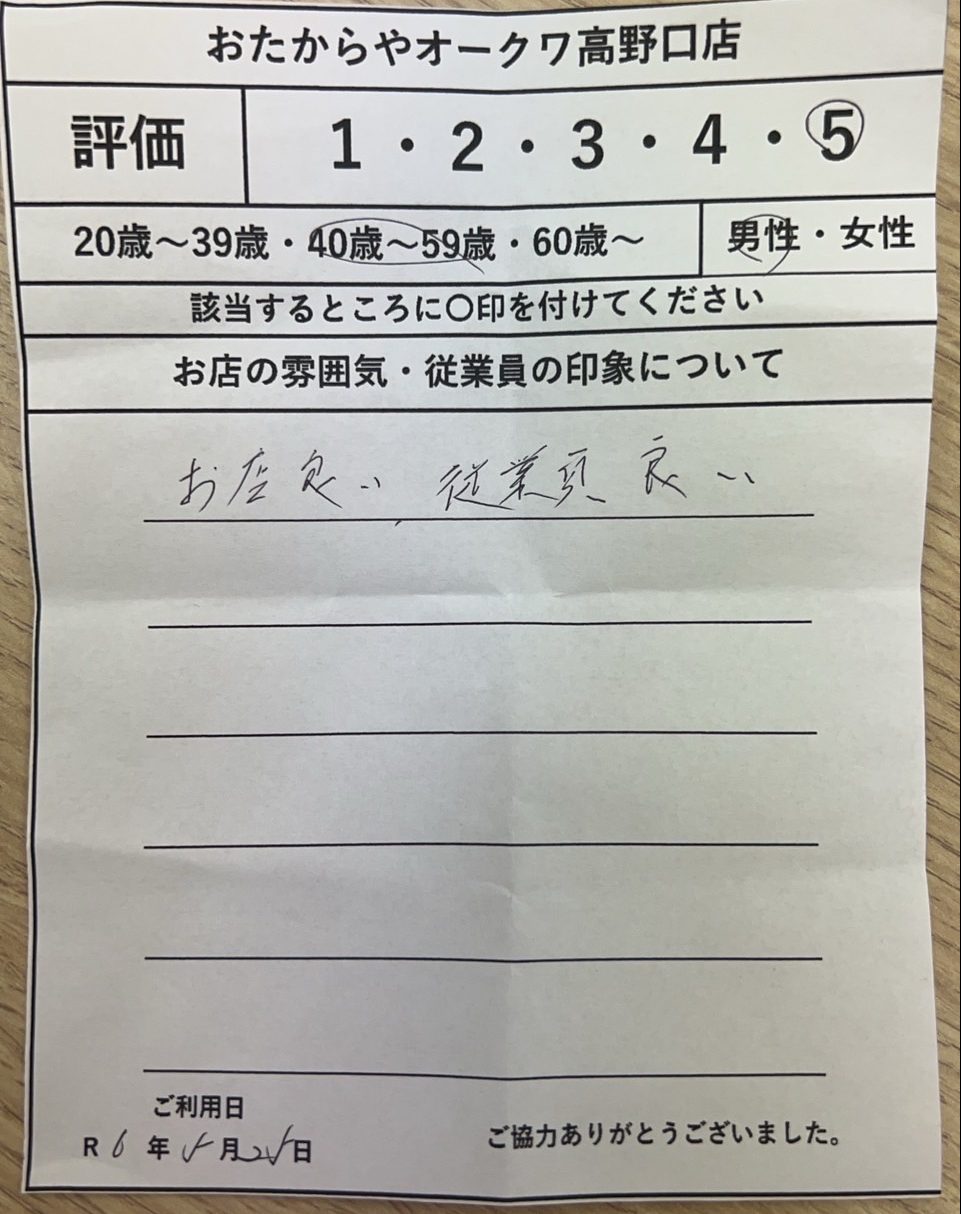 おたからやオークワ高野口店
評価 1・2・3・4・5
20歳～39歳・40歳～59歳・60歳～ 男性・女性
該当するところに〇印を付けてください
お店の雰囲気・従業員の印象について
お店良い、従業員良い
ご利用日
R6年5月25日
ご協力ありがとうございました。